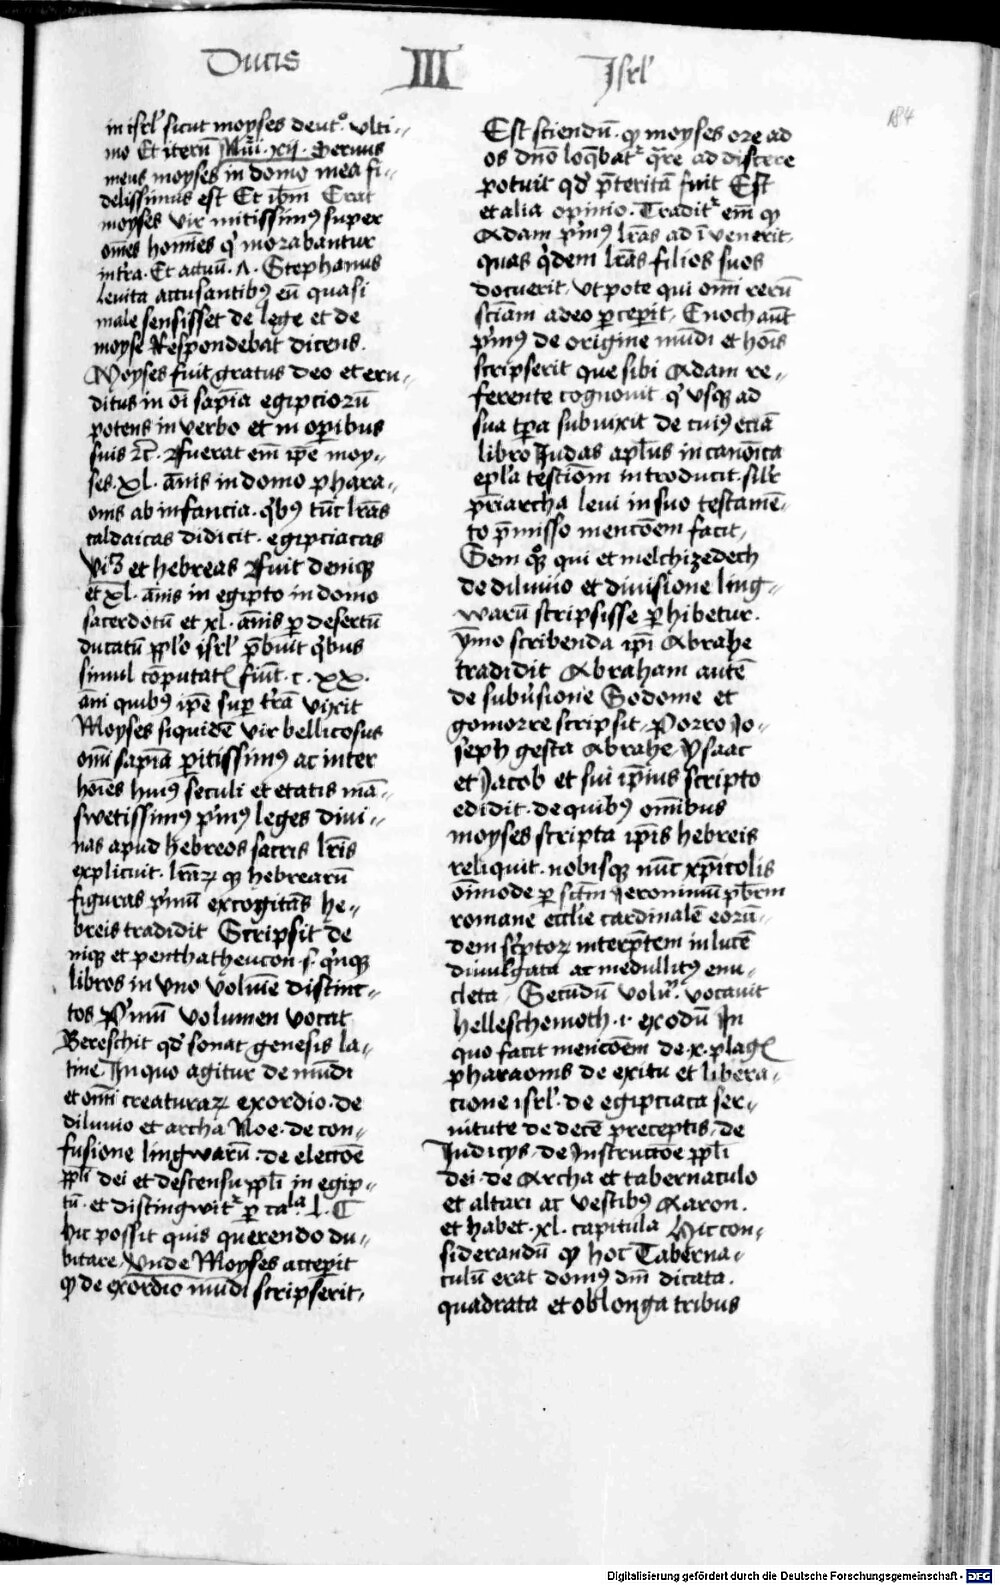 Ducis III Isrl'
184
in isrl' sicut moyses deut°. vlti-
mo Et iterū Nūi. xij. Seruus
meus moyses in domo mea fi-
delissimus est Et ibm̄ Erat
moyses vir mitissimꝰ super
om̄es homīes q' morabantur
in tr̄a. Et actuū. Stephanus
leuita accusantibꝰ eū quasi
male sensisset de lege et de
moyse Respondebat dicens.
Moyses fuit gratus deo et eru-
ditus in oī sapīa egipciorū
potens in verbo et in operibus
suis ꝛc̄. Fuerat em̄ ip̄e moy-
ses. xl. ānis in domo phara-
onis ab infancia. qbꝰ tūc lr̄as
caldaicas didicit. egipciacas
et hebreas Fuit deniqꝫ
et xl. ānis in egipto in domo
sacerdotū et xl. ānis ꝑ desertū
ducatū ppl'o isrl' p̄buit qbus
simul cōputat fiūt. c. xx.
āni quibꝰ ip̄e sup̄ tr̄ā vixit
Moyses siquidē vir bellicosus
om̄i sapīa ꝑitissimꝰ ac inter
hoīes huiꝰ seculi et etatis mā-
swetissimꝰ p'mꝰ leges diui-
nas apud hebreos sacris lr̄is
explicuit. lr̄aꝝ qꝫ hebrearū
figuras p'mū excogitās he-
breis tradidit Scripsit de
niqꝫ et penthatheucon. s. q'nqꝫ
libros in vno volumīe distinc-
tos P'mū volumen vocat
Bereschit qd' sonat genesis la-
tine. In quo agitur de mūdi
et om̄i creaturaꝝ exordio. de
diluuio et archa Noe. de con-
fusione lingwarū. de elecciōe
ppl'i dei et descensu ppl'i in egip-
tū. et distingwit' ꝑ caꝉa. l. C
hic possit quis querendo du-
bitare, Vnde Moyses acceperit
qꝫ de exordio mūdi scripserit,
Est sciendū. qꝫ moyses ore ad
os dn̄o loqbat' q̄re ad discere
potuit qd' p̄teritā fuit Est
et alia opinio. Tradit' em̄ qꝫ
Adam p'mꝰ lr̄as ad īvenerit,
quas q'dem lr̄as filios suos
docuerit, vt pote qui om̄i rerū
scīam adeo ꝑcepit, Enoch aūt
p'mꝰ de origine mūdi et hoīs
scripserit que sibi Adam re-
ferente cognouit q' vsqꝫ ad
sua tp̄a subuixit de cuiꝰ eciā
libro Judas apl'us in canonīca
epl'a testiom̄ introducit. silr
pr̄iarcha leui in suo testamē-
to p̄misso mencōem facit,
Sem q°qꝫ qui et melchizedech
de diluuio et diuisione ling-
warū scripsisse ꝑhibetur.
ymo scribenda ip̄i Abrahe
tradidit Abraham autē
de subu'sione Sodome et
gomorre scripsit. Porro Jo-
seph gesta Abrahe, ysaac
et Jacob et sui ip̄ius scripto
edidit. de quibꝰ om̄ibus
moyses scripta ip̄is hebreis
reliquit. nobisqꝫ nūc xp̄icolis
om̄imode ꝑ sc̄tm̄ Jeronimū pb̄rm
romane eccl'ie cardinalē eorū-
dem sc'ptoꝝ interp̄tem in lucē
diuulgata ac medullitꝰ enu-
cleta, Secūdū volu. vocauit
helleschemoth. i. exodū In
quo facit mencōem de. x. plag
pharaonis de exitu et libera-
cione isrl' de egipciaca ser-
uitute de decē preceptis, de
Judicijs, de Instruccōe ppl'i
dei. de Archa et tabernaculo
et altari ac vestibꝰ Aaron.
et habet. xl. capitula Hic con-
siderandū qꝫ hoc Taberna-
culū erat domꝰ dn̄i dicata.
quadrata et oblonga tribus
Digitalisierung gefördert durch die Deutsche Forschungsgemeinschaft - DFG